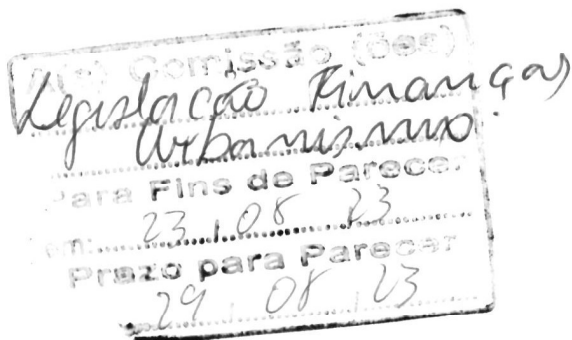 À(s) Comissão (ões)
Legislação Finanças
Urbanismo.
Para Fins de Parecer
Em: 23 / 08 / 23
Prazo para Parecer
29 / 08 / 23